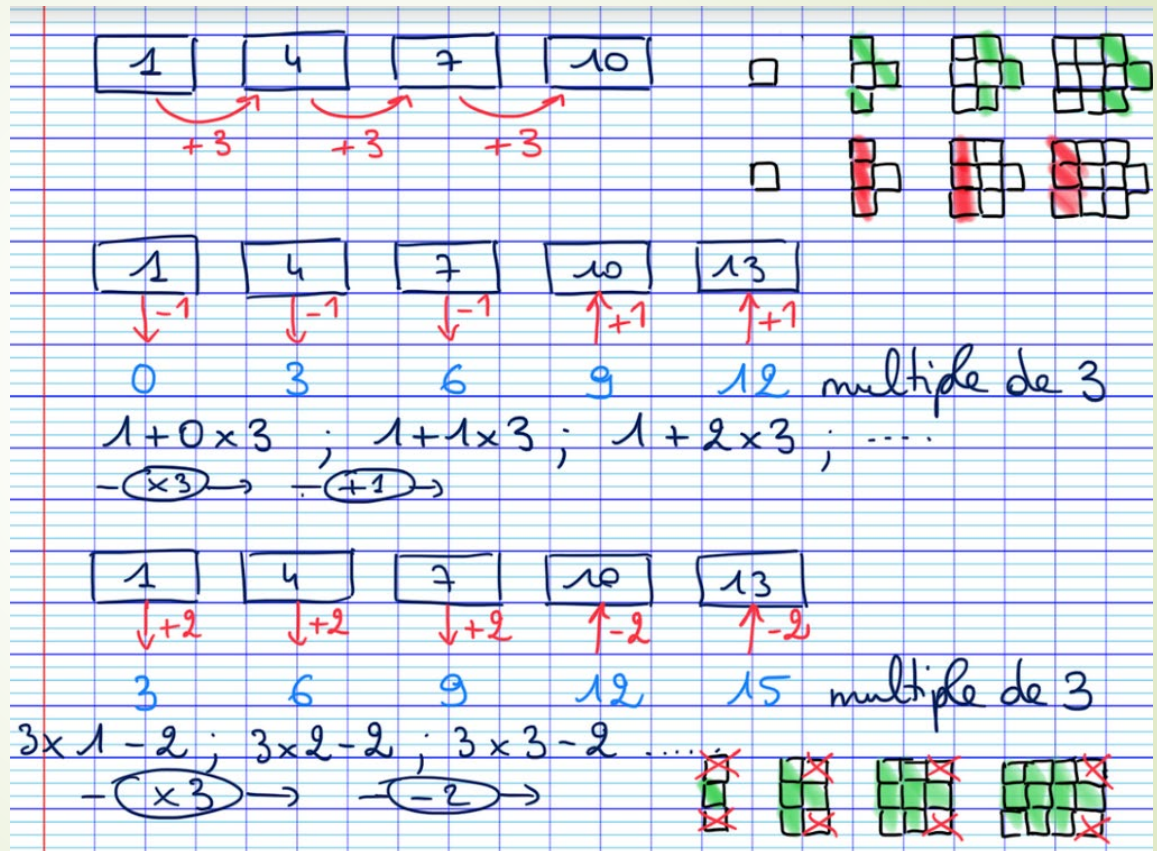 1 4 7 10
+3 +3 +3
1 4 7 10 13
-1 -1 -1 +1 +1
0 3 6 9 12 multiple de 3
1+0×3 ; 1+1×3 ; 1+2×3 ; ....
×3 +1
1 4 7 10 13
+2 +2 +2 -2 -2
3 6 9 12 15 multiple de 3
3×1-2 ; 3×2-2 ; 3×3-2 .....
×3 -2